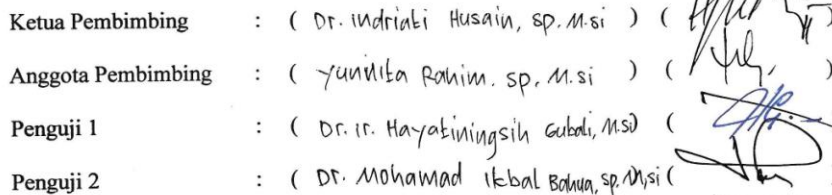 Ketua Pembimbing : ( Dr. indriati Husain, sp. M.si ) (
Anggota Pembimbing : ( Yunnita Rahim. sp, M.si ) ( )
Penguji 1 : ( Dr. ir. Hayatiningsih Gubali, M.si) (
Penguji 2 : ( Dr. Mohamad Ikbal Bahua, sp, M,si (